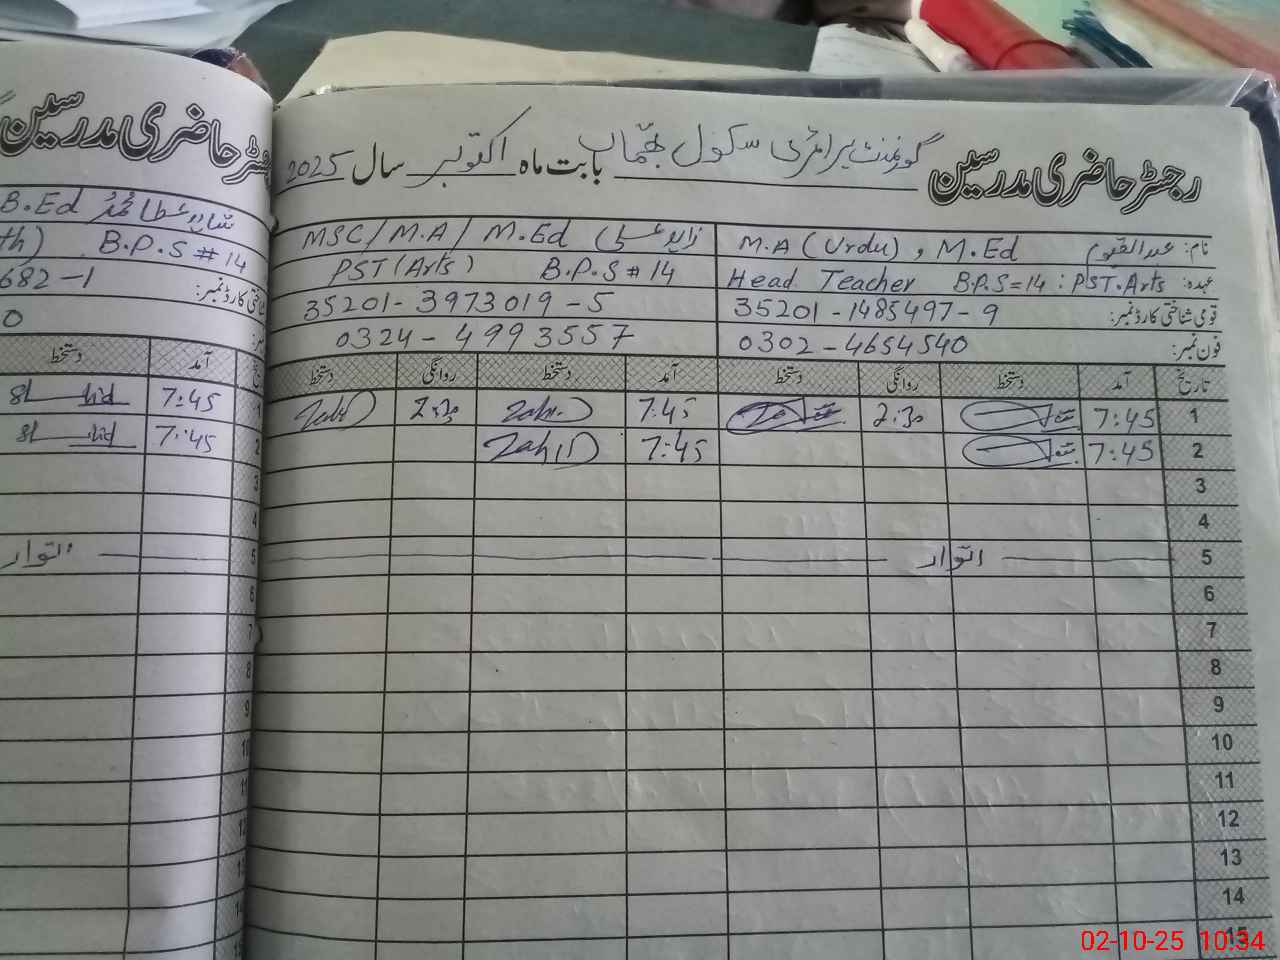 رجسٹر حاضری مدرسین گورنمنٹ پرائمری سکول بھمباں بابت ماہ اکتوبر سال 2025
نام: عبدالقیوم M.A (Urdu) , M.Ed
عہدہ: Head Teacher B.P.S=14 : PST.Arts
قومی شناختی کارڈ نمبر: 35201-1485497-9
فون نمبر: 0302-4654540
زاہد علی MSC/M.A/M.Ed
PST(Arts) B.P.S # 14
35201-3973019-5
0324-4993557
تاریخ آمد دستخط روانگی دستخط آمد دستخط روانگی دستخط
1 7:45 2:30 7:45 Zahid 2:30 Zahid
2 7:45 7:45 Zahid
3
4
5 اتوار
6
7
8
9
10
11
12
13
14
15
رجسٹر حاضری مدرسین
B.Ed
th) B.P.S # 14
شناختی کارڈ نمبر: 682-1
0
آمد دستخط
1 7:45
2 7:45
3
4
5 اتوار
6
7
8
9
10
11
12
13
14
02-10-25 10:34